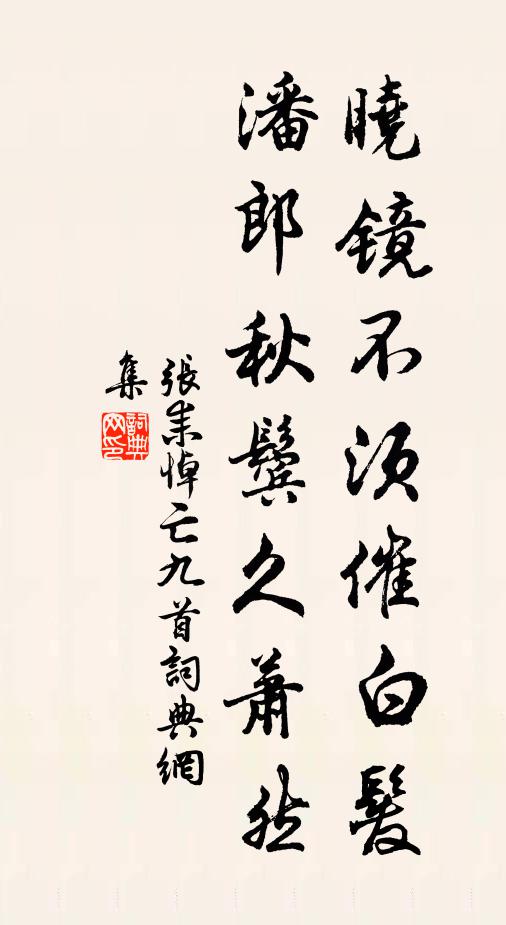 曉鏡不須催白髮
潘郎秋鬢久蕭然
張耒悼亡九首詞典網
集
詞典
網印